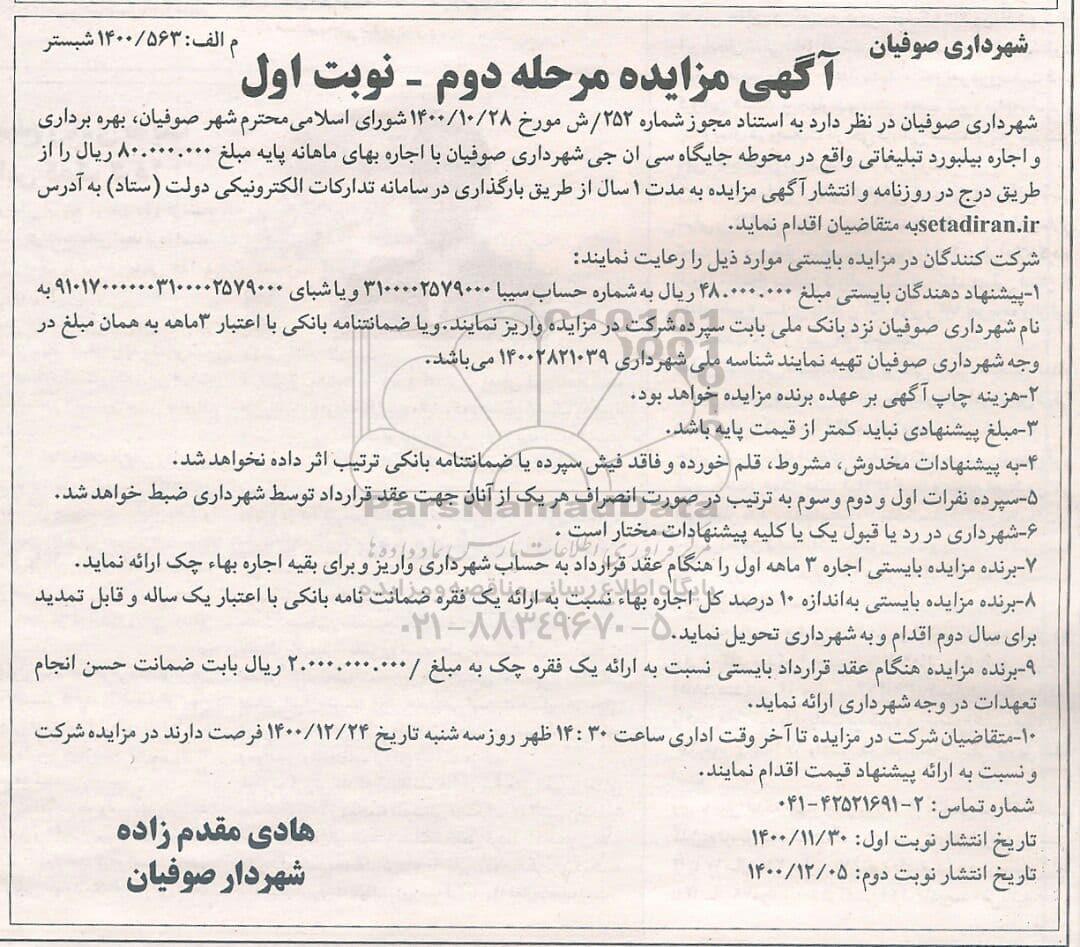 شهرداری صوفیان
م الف: ۱۴۰۰/۵۶۳ شبستر
آگهی مزایده مرحله دوم ـ نوبت اول
شهرداری صوفیان در نظر دارد به استناد مجوز شماره ۲۵۲/ش مورخ ۱۴۰۰/۱۰/۲۸ شورای اسلامی محترم شهر صوفیان، بهره برداری
و اجاره بیلبورد تبلیغاتی واقع در محوطه جایگاه سی ان جی شهرداری صوفیان با اجاره بهای ماهانه پایه مبلغ ۸۰.۰۰۰.۰۰۰ ریال را از
طریق درج در روزنامه و انتشار آگهی مزایده به مدت ۱ سال از طریق بارگذاری در سامانه تدارکات الکترونیکی دولت (ستاد) به آدرس
setadiran.ir به متقاضیان اقدام نماید.
شرکت کنندگان در مزایده بایستی موارد ذیل را رعایت نمایند:
۱-پیشنهاد دهندگان بایستی مبلغ ۴۸.۰۰۰.۰۰۰ ریال به شماره حساب سیبا ۳۱۰۰۰۰۲۵۷۹۰۰۰ و یا شبای ۹۱۰۱۷۰۰۰۰۰۰۳۱۰۰۰۰۲۵۷۹۰۰۰ به
نام شهرداری صوفیان نزد بانک ملی بابت سپرده شرکت در مزایده واریز نمایند.ویا ضمانتنامه بانکی با اعتبار ۳ماهه به همان مبلغ در
وجه شهرداری صوفیان تهیه نمایند شناسه ملی شهرداری ۱۴۰۰۲۸۲۱۰۳۹ می باشد.
۲-هزینه چاپ آگهی بر عهده برنده مزایده خواهد بود.
۳-مبلغ پیشنهادی نباید کمتر از قیمت پایه باشد.
۴-به پیشنهادات مخدوش، مشروط، قلم خورده و فاقد فیش سپرده یا ضمانتنامه بانکی ترتیب اثر داده نخواهد شد.
۵-سپرده نفرات اول و دوم و سوم به ترتیب در صورت انصراف هر یک از آنان جهت عقد قرارداد توسط شهرداری ضبط خواهد شد.
ParsNamadData
۶-شهرداری در رد یا قبول یک یا کلیه پیشنهادات مختار است .
۷-برنده مزایده بایستی اجاره ۳ ماهه اول را هنگام عقد قرارداد به حساب شهرداری واریز و برای بقیه اجاره بهاء چک ارائه نماید.
پایگاه اطلاع رسانی مناقصه و مزایده
۸-برنده مزایده بایستی به اندازه ۱۰ درصد کل اجاره بهاء نسبت به ارائه یک فقره ضمانت نامه بانکی با اعتبار یک ساله و قابل تمدید
برای سال دوم اقدام و به شهرداری تحویل نماید.
۰۲۱-۸۸۳۴۹۶۷۰-۵
۹-برنده مزایده هنگام عقد قرارداد بایستی نسبت به ارائه یک فقره چک به مبلغ /۲.۰۰۰.۰۰۰.۰۰۰ ریال بابت ضمانت حسن انجام
تعهدات در وجه شهرداری ارائه نماید.
۱۰-متقاضیان شرکت در مزایده تا آخر وقت اداری ساعت ۳۰ :۱۴ ظهر روز سه شنبه تاریخ ۱۴۰۰/۱۲/۲۴ فرصت دارند در مزایده شرکت
و نسبت به ارائه پیشنهاد قیمت اقدام نمایند.
شماره تماس: ۲-۴۲۵۲۱۶۹۱-۰۴۱
تاریخ انتشار نوبت اول: ۱۴۰۰/۱۱/۳۰
تاریخ انتشار نوبت دوم: ۱۴۰۰/۱۲/۰۵
هادی مقدم زاده
شهردار صوفیان